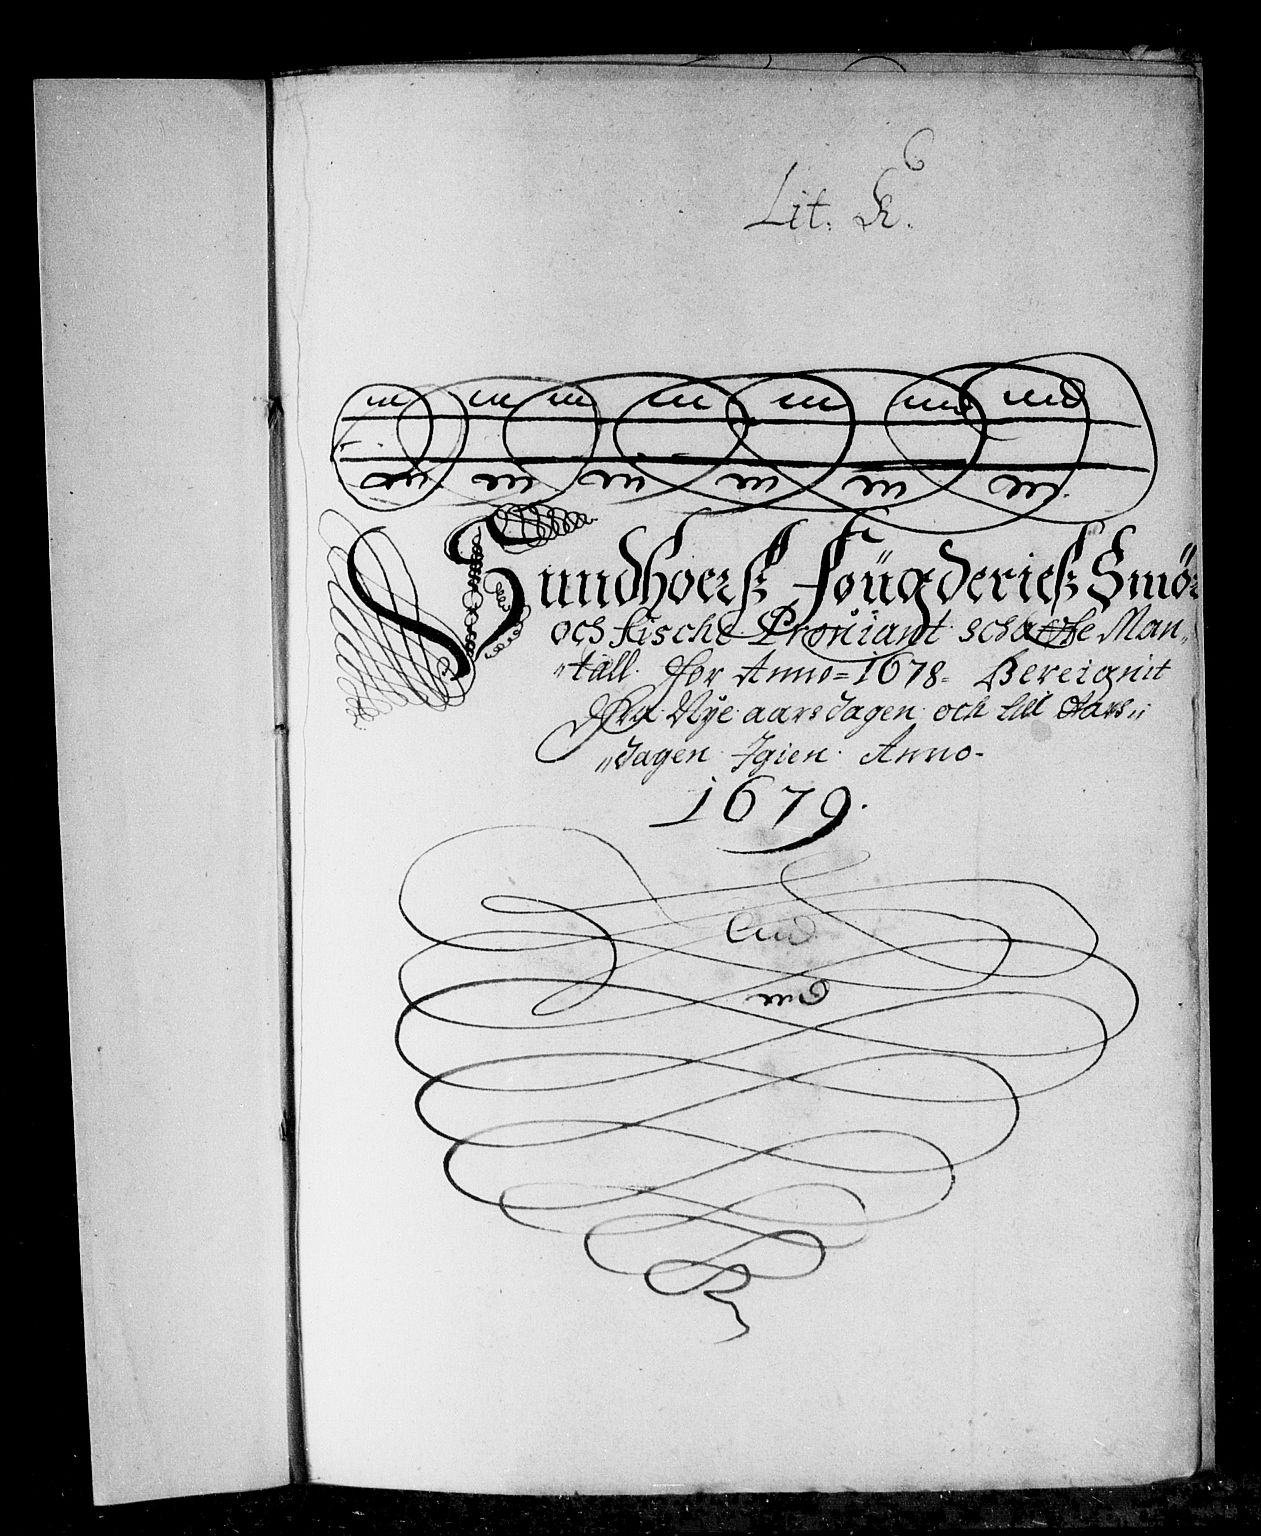 Lit: K.
Sundhoerſz Foügderieſz Smör
och fische Prouiant schatte Man„
„tall for Anno=1678= Bereignit
Fra Nye aarsdagen och till Aars„
„dagen Igien Anno-
1679.